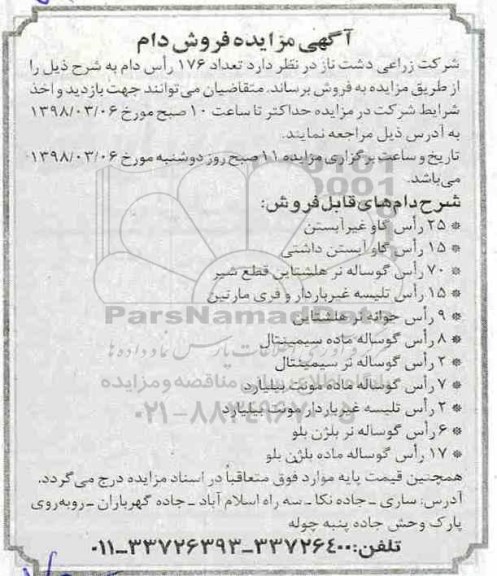 آگهی مزایده فروش دام
شرکت زراعی دشت ناز در نظر دارد تعداد ۱۷۶ رأس دام به شرح ذیل را
از طریق مزایده به فروش برساند. متقاضیان می‌توانند جهت بازدید و اخذ
شرایط شرکت در مزایده حداکثر تا ساعت ۱۰ صبح مورخ ۱۳۹۸/۰۳/۰۶
به آدرس ذیل مراجعه نمایند.
تاریخ و ساعت برگزاری مزایده ۱۱ صبح روز دوشنبه مورخ ۱۳۹۸/۰۳/۰۶
می‌باشد.
شرح دام‌های قابل فروش:
* ۲۵ رأس گاو غیرآبستن
* ۱۵ رأس گاو آبستن داشتی
* ۷۰ رأس گوساله نر هلشتاین قطع شیر
* ۱۵ رأس تلیسه غیرباردار و فری مارتین
* ۹ رأس جوانه نر هلشتاین
ParsNamadData
* ۸ رأس گوساله ماده سیمینتال
* ۲ رأس گوساله نر سیمینتال
* ۷ رأس گوساله ماده مونت بیلیارد
* ۲ رأس تلیسه غیرباردار مونت بیلیارد
* ۶ رأس گوساله نر بلژن بلو
* ۱۷ رأس گوساله ماده بلژن بلو
همچنین قیمت پایه موارد فوق متعاقباً در اسناد مزایده درج می‌گردد.
آدرس: ساری ـ جاده نکا ـ سه راه اسلام آباد ـ جاده گهرباران ـ روبه‌روی
پارک وحش جاده پنبه چوله
تلفن: ۳۳۷۲۶۴۰۰-۳۳۷۲۶۳۹۳-۰۱۱